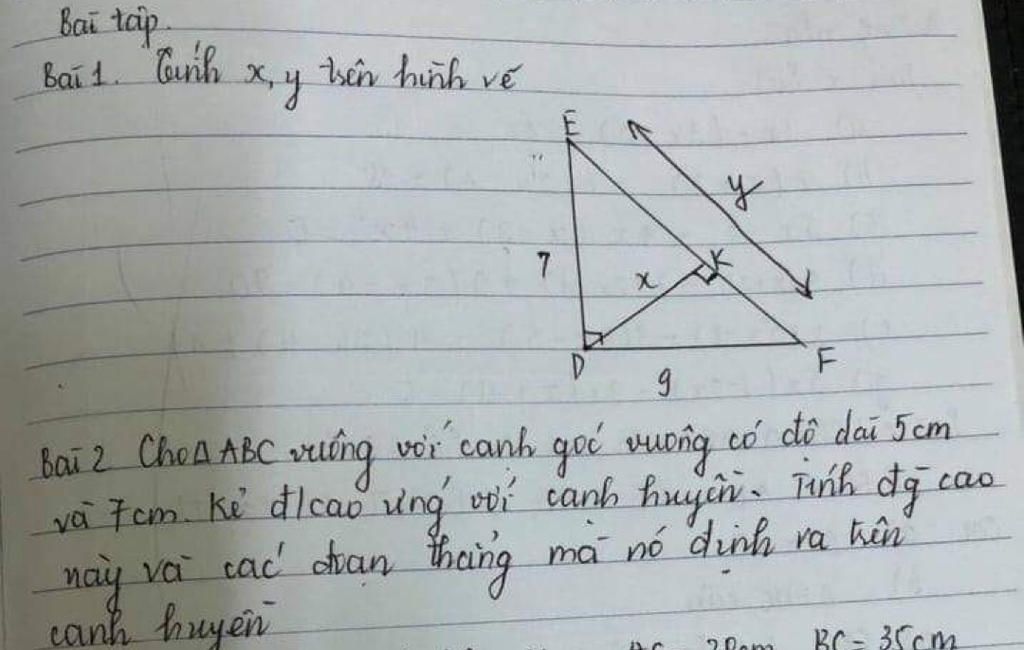 Bài tập.
Bài 1. Tính x, y trên hình vẽ
E
y
7
x
K
D
F
9
Bài 2 Cho Δ ABC vuông với cạnh góc vuông có độ dài 5cm
và 7cm. Kẻ đ/cao ứng với cạnh huyền. Tính đg cao
này và các đoạn thẳng mà nó định ra trên
cạnh huyền
BC = 35cm